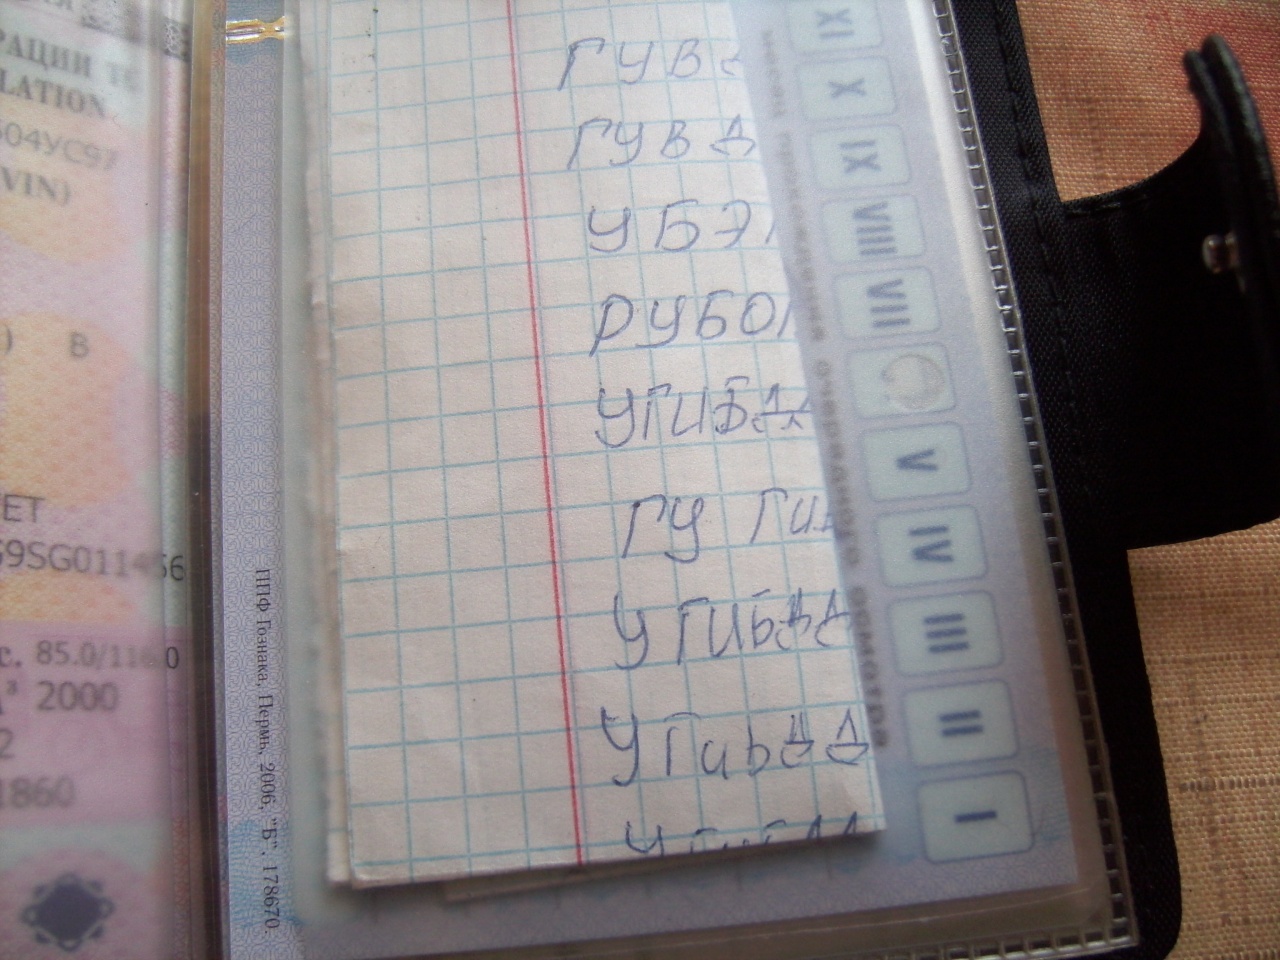 РАЦИИ ТС
LATION
504УС97
VIN)
) В
ЕТ
69SG011456
с. 85.0/116.0
³ 2000
2
1860
ППФ Гознака, Пермь, 2006, "Б". 178670.
ГУВД
ГУВД
УБЭ
РУБО
УГИБДД
ГУ ГИ
УГИБДД
УГИБДД
УГИБДД
XI
X
IX
VIII
VII
V
IV
III
II
I